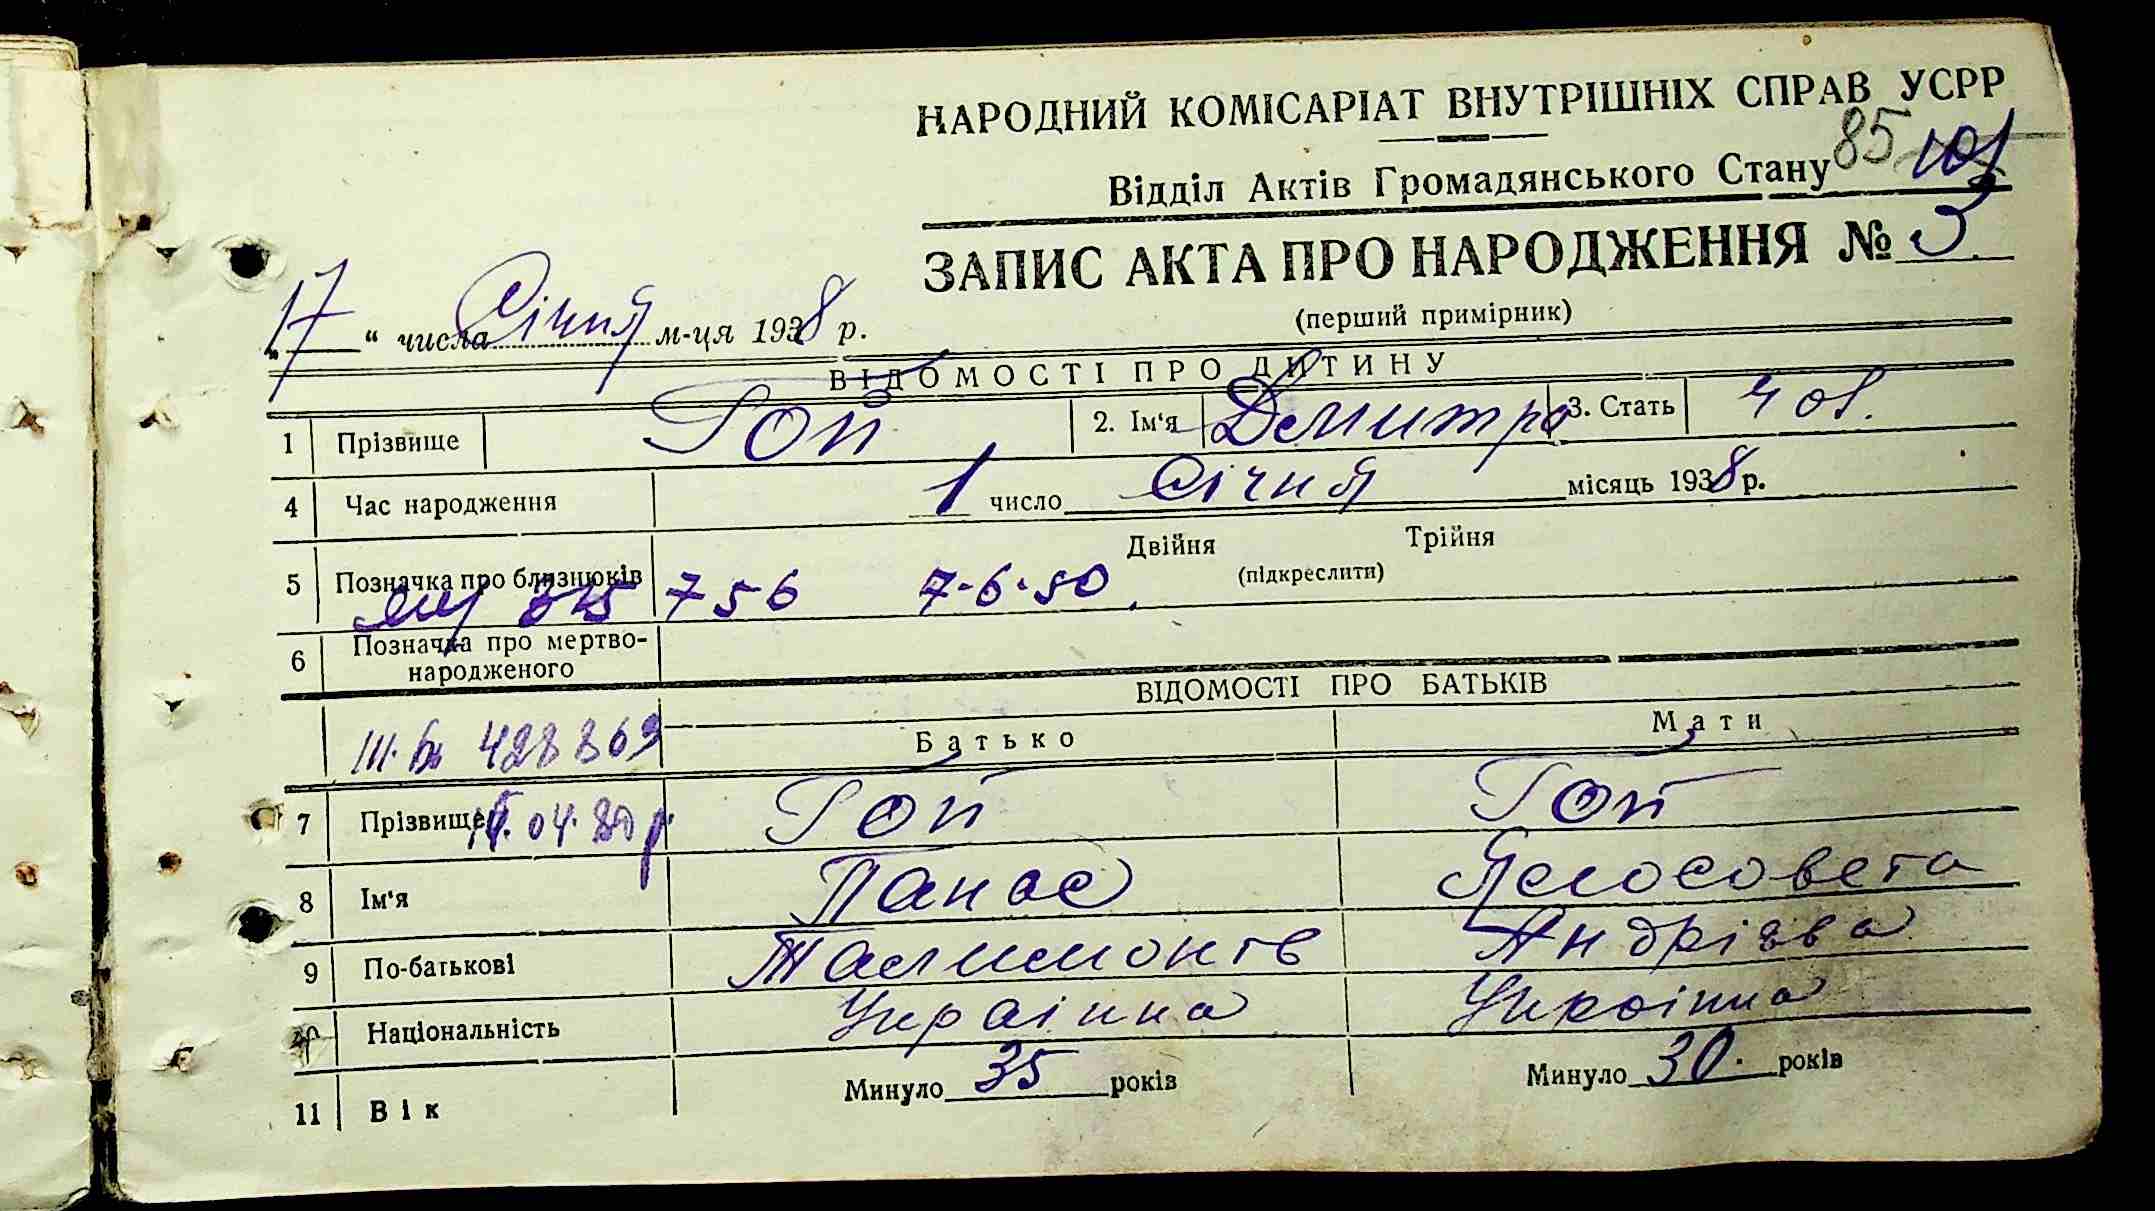 НАРОДНИЙ КОМІСАРІАТ ВНУТРІШНІХ СПРАВ УСРР
85 101
Відділ Актів Громадянського Стану
ЗАПИС АКТА ПРО НАРОДЖЕННЯ № 3
(перший примірник)
„17“ числа Січня м-ця 1938 р.
ВІДОМОСТІ ПРО ДИТИНУ
1 Прізвище Гой 2. Ім'я Демитро 3. Стать чол.
4 Час народження 1 число Січня місяць 1938 р.
Двійня Трійня
5 Позначка про близнюків (підкреслити)
756 7-6-50
6 Позначка про мертво-
народженого
ВІДОМОСТІ ПРО БАТЬКІВ
428869 Батько Мати
7 Прізвище 04.80 р. Гой Гой
8 Ім'я Панас
9 По-батькові Андріэва
10 Національність Украінка Украінка
11 Вік Минуло 35 років Минуло 30. років